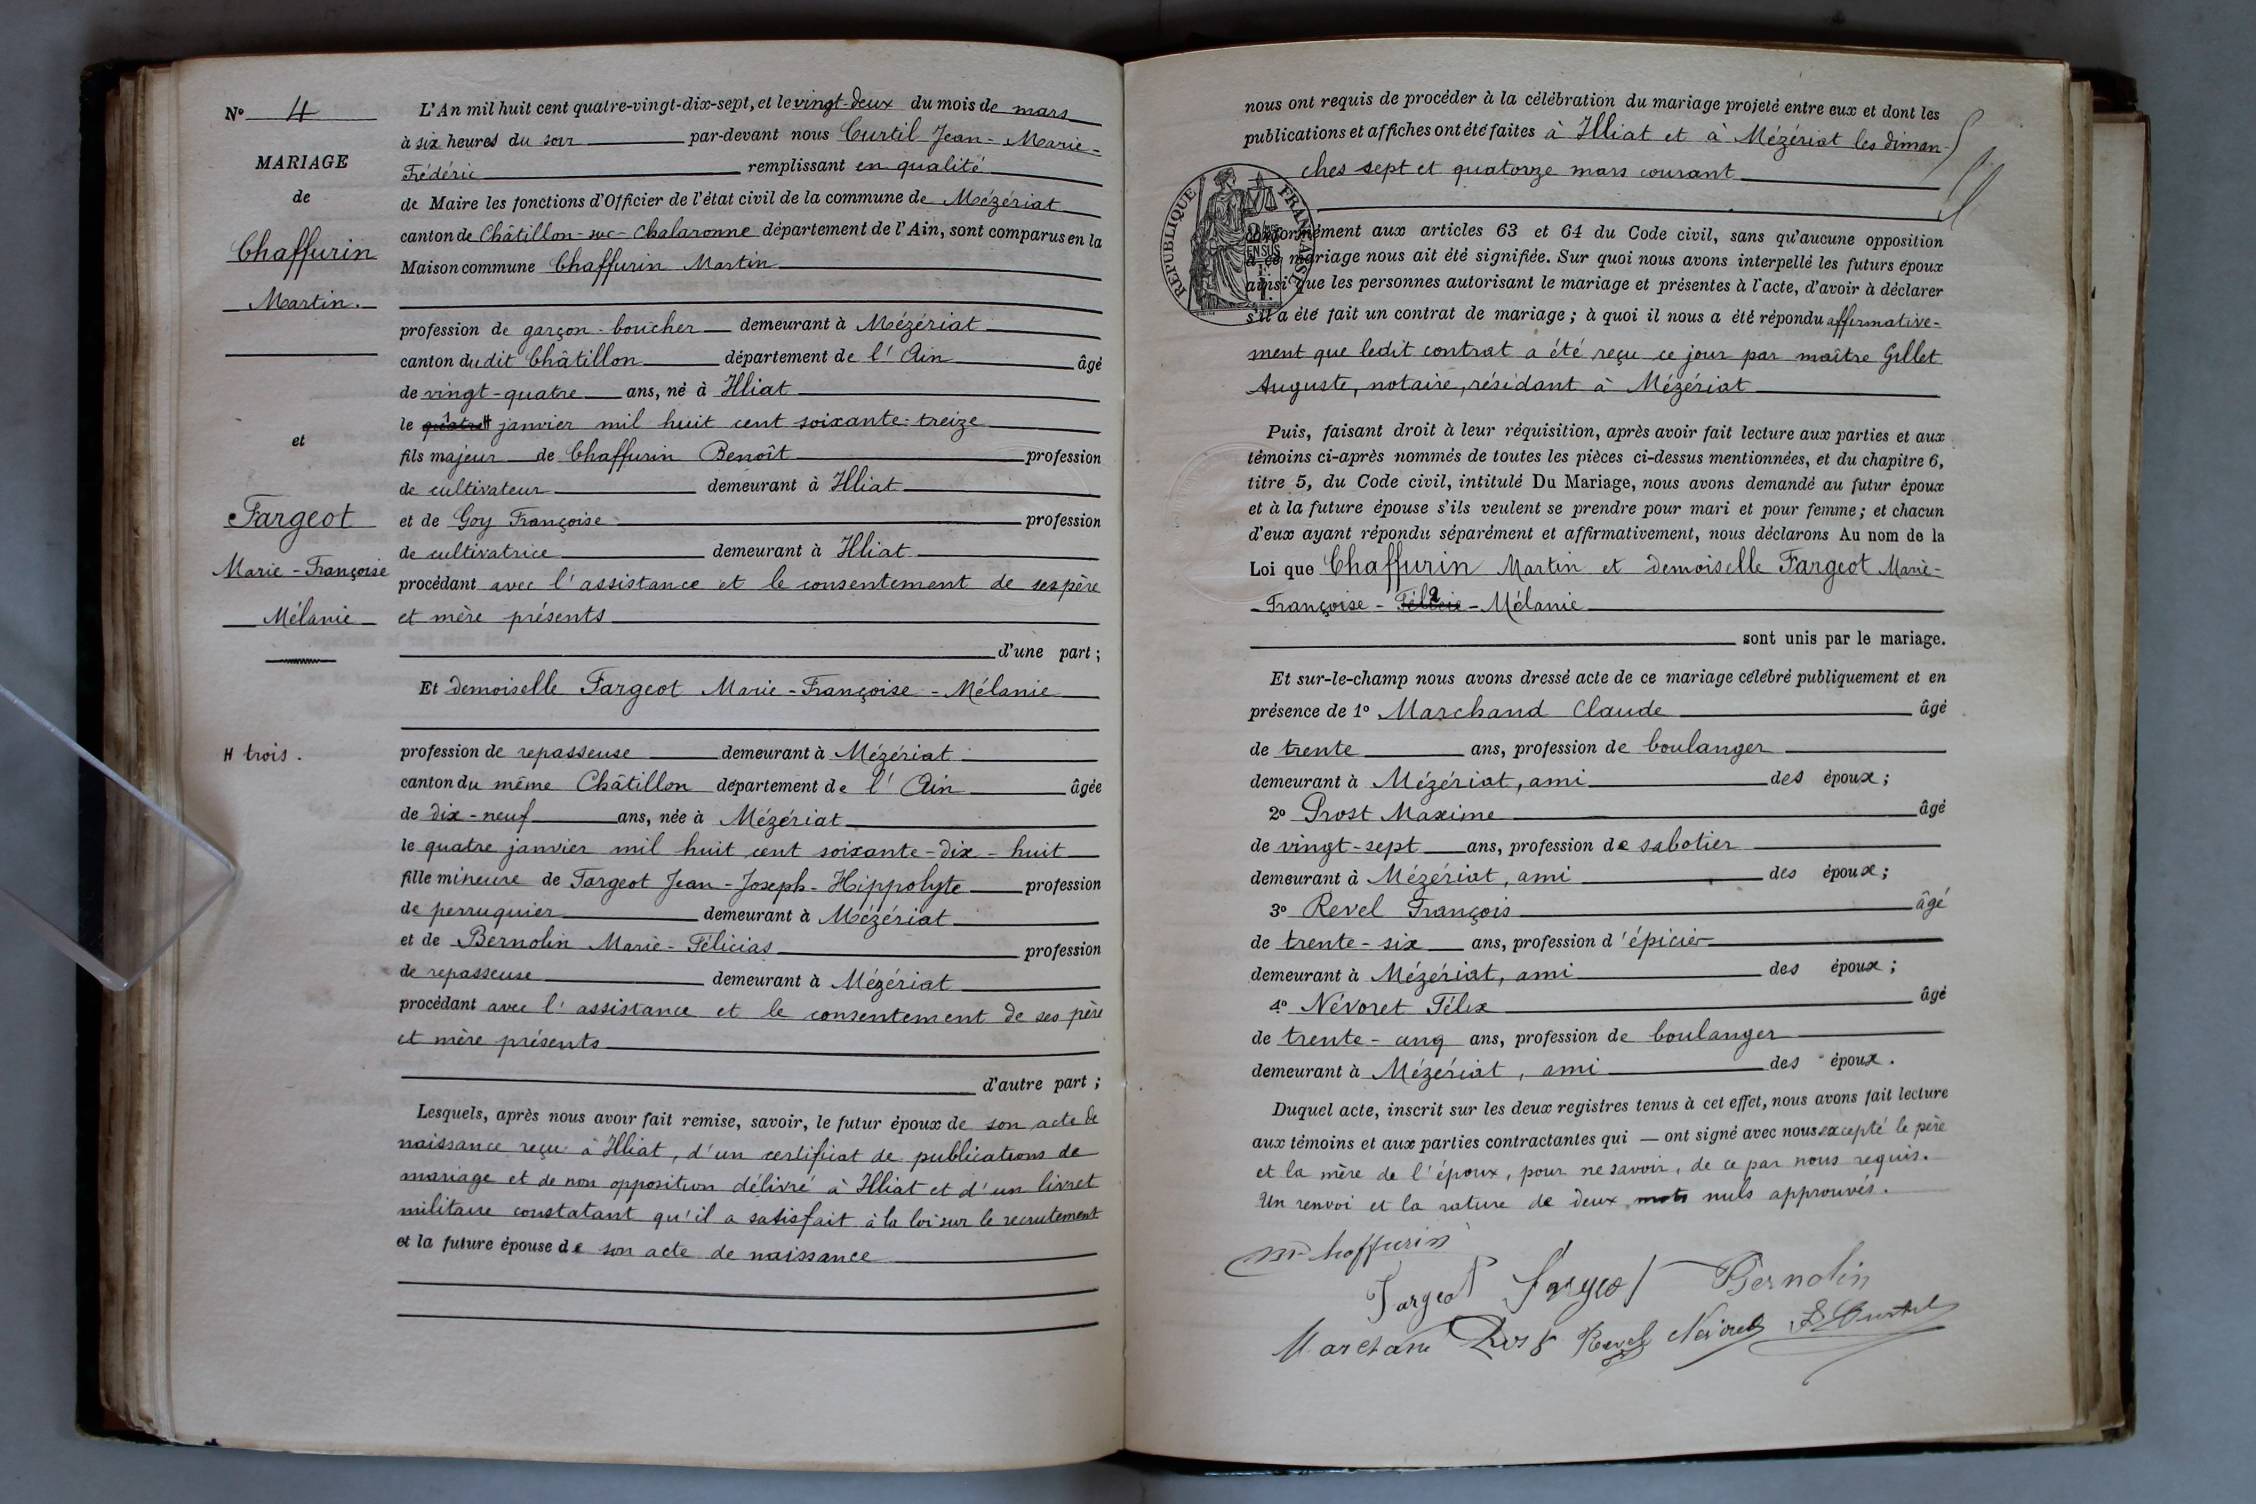 N° 4
MARIAGE
de
Chaffurin
Martin.
et
Fargeot
Marie-Françoise
Mélanie
H trois.
L'An mil huit cent quatre-vingt-dix-sept, et le vingt-deux du mois de mars
à six heures du soir par-devant nous Curtil Jean-Marie-
Frédéric remplissant en qualité
de Maire les fonctions d'Officier de l'état civil de la commune de Mézériat
canton de Châtillon-sur-Chalaronne département de l'Ain, sont comparus en la
Maison commune Chaffurin Martin
profession de garçon-boucher demeurant à Mézériat
canton du dit Châtillon département de l'Ain âgé
de vingt-quatre ans, né à Illiat
le quatre H janvier mil huit cent soixante-treize
fils majeur de Chaffurin Benoît profession
de cultivateur demeurant à Illiat
et de Goy Françoise profession
de cultivatrice demeurant à Illiat
procédant avec l'assistance et le consentement de ses père
et mère présents
d'une part ;
Et demoiselle Fargeot Marie-Françoise-Mélanie
profession de repasseuse demeurant à Mézériat
canton du même Châtillon département de l'Ain âgée
de dix-neuf ans, née à Mézériat
le quatre janvier mil huit cent soixante-dix-huit
fille mineure de Fargeot Jean-Joseph-Hippolyte profession
de perruquier demeurant à Mézériat
et de Bernolin Marie-Félicias profession
de repasseuse demeurant à Mézériat
procédant avec l'assistance et le consentement de ses père
et mère présents
d'autre part ;
Lesquels, après nous avoir fait remise, savoir, le futur époux de son acte de
naissance reçu à Illiat, d'un certificat de publications de
mariage et de non opposition délivré à Illiat et d'un livret
militaire constatant qu'il a satisfait à la loi sur le recrutement
et la future épouse de son acte de naissance
nous ont requis de procéder à la célébration du mariage projeté entre eux et dont les
publications et affiches ont été faites à Illiat et à Mézériat les diman-
ches sept et quatorze mars courant
RÉPUBLIQUE FRANÇAISE
conformément aux articles 63 et 64 du Code civil, sans qu'aucune opposition
à ce mariage nous ait été signifiée. Sur quoi nous avons interpellé les futurs époux
ainsi que les personnes autorisant le mariage et présentes à l'acte, d'avoir à déclarer
s'il a été fait un contrat de mariage ; à quoi il nous a été répondu affirmative-
ment que ledit contrat a été reçu ce jour par maître Gillet
Auguste, notaire, résidant à Mézériat
Puis, faisant droit à leur réquisition, après avoir fait lecture aux parties et aux
témoins ci-après nommés de toutes les pièces ci-dessus mentionnées, et du chapitre 6,
titre 5, du Code civil, intitulé Du Mariage, nous avons demandé au futur époux
et à la future épouse s'ils veulent se prendre pour mari et pour femme ; et chacun
d'eux ayant répondu séparément et affirmativement, nous déclarons Au nom de la
Loi que Chaffurin Martin et demoiselle Fargeot Marie-
Françoise - Mélanie
sont unis par le mariage.
Et sur-le-champ nous avons dressé acte de ce mariage célébré publiquement et en
présence de 1° Marchand Claude âgé
de trente ans, profession de boulanger
demeurant à Mézériat, ami des époux ;
2° Prost Maxime âgé
de vingt-sept ans, profession de sabotier
demeurant à Mézériat, ami des époux ;
3° Revel François âgé
de trente-six ans, profession d'épicier
demeurant à Mézériat, ami des époux ;
4° Névoret Félix âgé
de trente-cinq ans, profession de boulanger
demeurant à Mézériat, ami des époux.
Duquel acte, inscrit sur les deux registres tenus à cet effet, nous avons fait lecture
aux témoins et aux parties contractantes qui — ont signé avec nous excepté le père
et la mère de l'époux, pour ne savoir, de ce par nous requis.
Un renvoi et la rature de deux mots nuls approuvés.
M Chaffurin
Fargeot Fargeot Bernolin
Marchand Prost Revel Névoret F Curtil